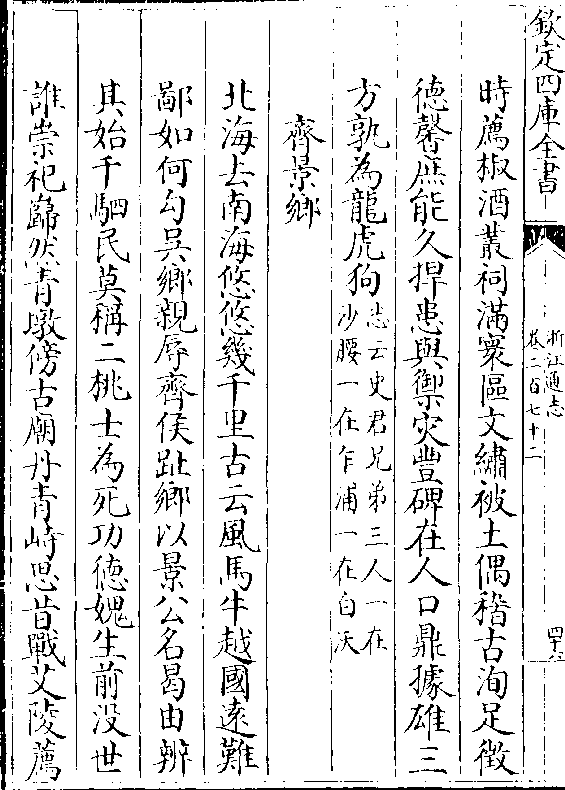 欽定四庫全書
浙江通志
卷二百七十二
時薦椒酒叢祠滿寰區文繡被土偶稽古洵足徵
德馨庶能久捍患與禦灾豐碑在人口鼎據雄三
方孰為龍虎狗
志云史君兄弟三人一在
沙腰一在乍浦一在白沃
齊景鄉
北海去南海悠悠幾千里古云風馬牛越國遠難
鄙如何勾吳鄉親辱齊侯趾鄉以景公名曷由辨
其始千駟民莫稱二桃士為死功德媿生前没世
誰崇祀巋然青墩傍古廟丹青峙思昔戰艾陵薦